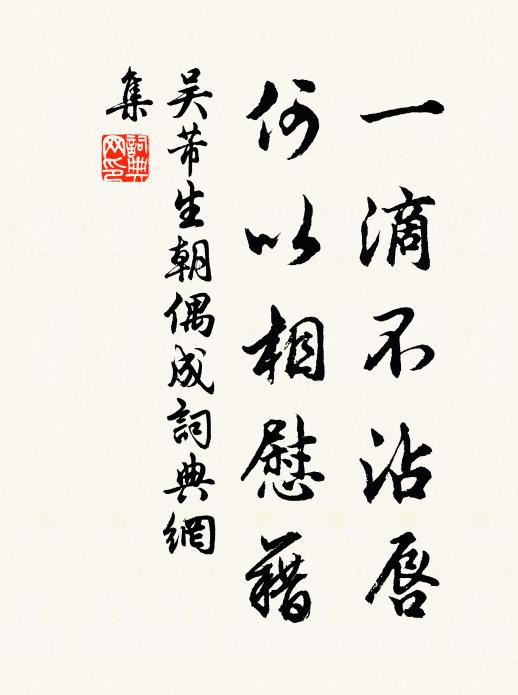 一滴不沾唇
何以相慰藉
吴芾生朝偶成詞典網
集
詞典网印